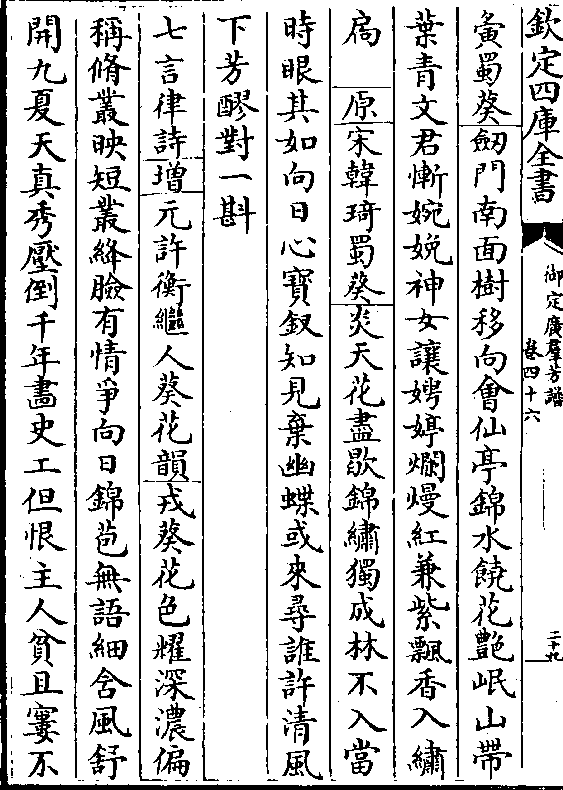 欽定四庫全書
御定廣羣芳譜
卷四十六
二十九
黃蜀葵劒門南面樹移向會仙亭錦水饒花艷岷山帶
葉青文君慚婉娩神女讓娉婷爛熳紅兼紫飄香入繡
扃　原宋韓琦蜀葵炎天花盡歇錦繡獨成林不入當
時眼其如向日心寶釵知見棄幽蝶或來尋誰許清風
下芳醪對一斟
七言律詩增元許衡繼人葵花韻戎葵花色耀深濃偏
稱脩叢映短叢絳臉有情爭向日錦苞無語細含風舒
開九夏天真秀壓倒千年畵史工但恨主人貧且寠不